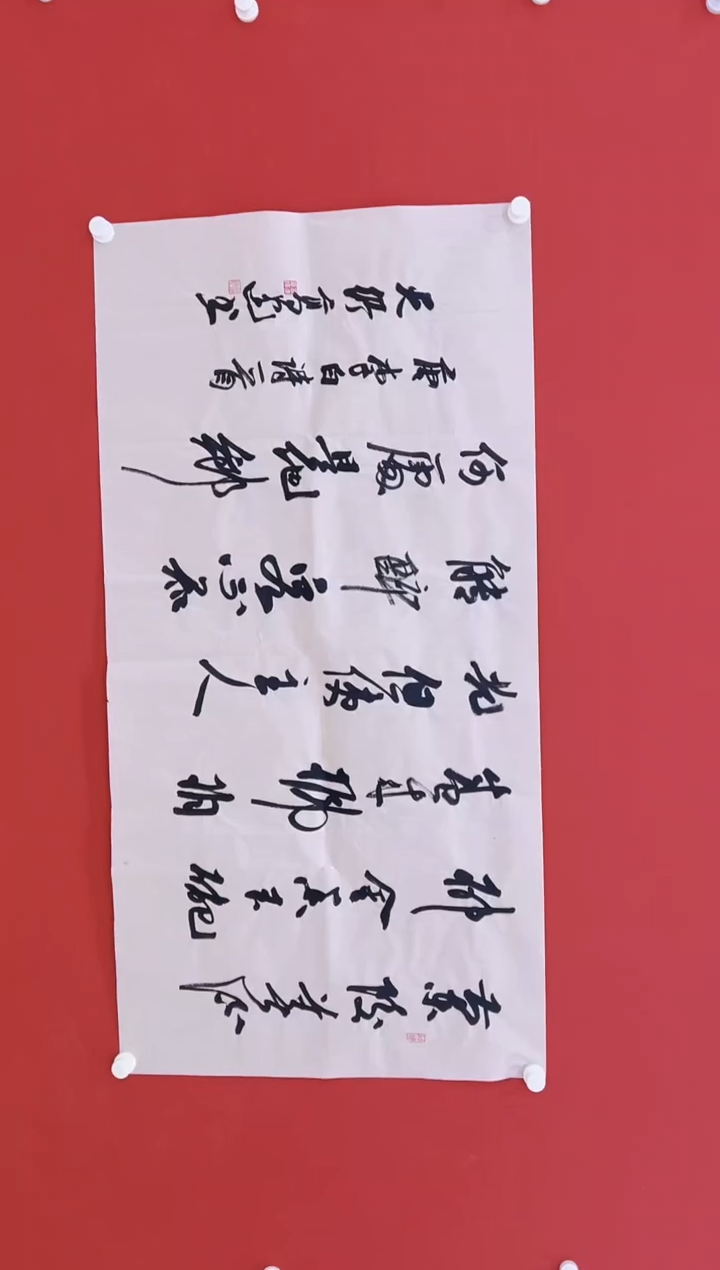 蘭陵美酒
鬱金香玉碗
盛来琥珀
光但使主人
能醉客不知
何處是他鄉
唐李白詩一首